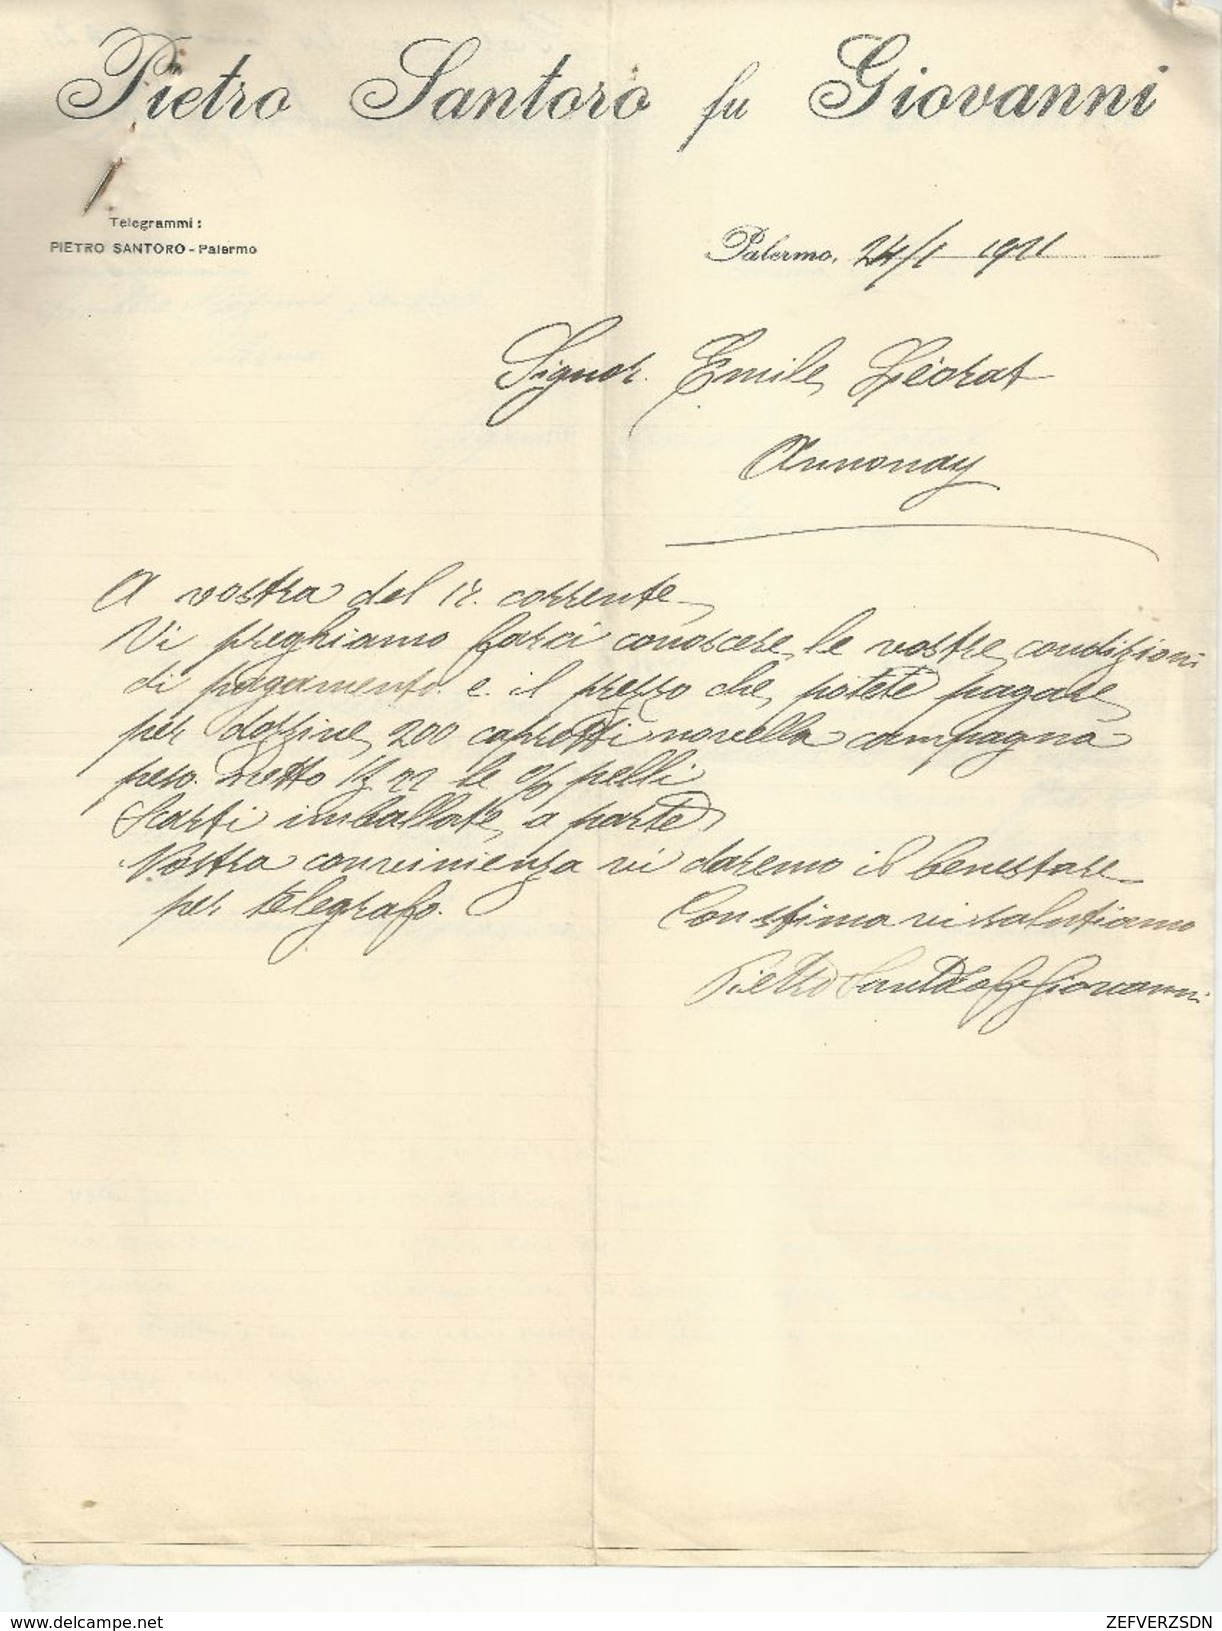 Pietro Santoro fu Giovanni
Telegrammi:
PIETRO SANTORO - Palermo
Palermo, 24/1 1921
Signor. Emile Léorat
Annonay
A vostra del 17. corrente
Vi preghiamo farci conoscere le vostre condizioni
di pagamento. e. il prezzo che potete pagare
per dozzine 200 capretti novella campagna
peso. netto K. 77 le % pelli
Scarti imballate a parte
Vostra convinienza vi daremo il benestare
per telegrafo.
Con stima vi salutiamo
Pietro Santoro fu Giovanni
ZEFVERZSDN
www.delcampe.net